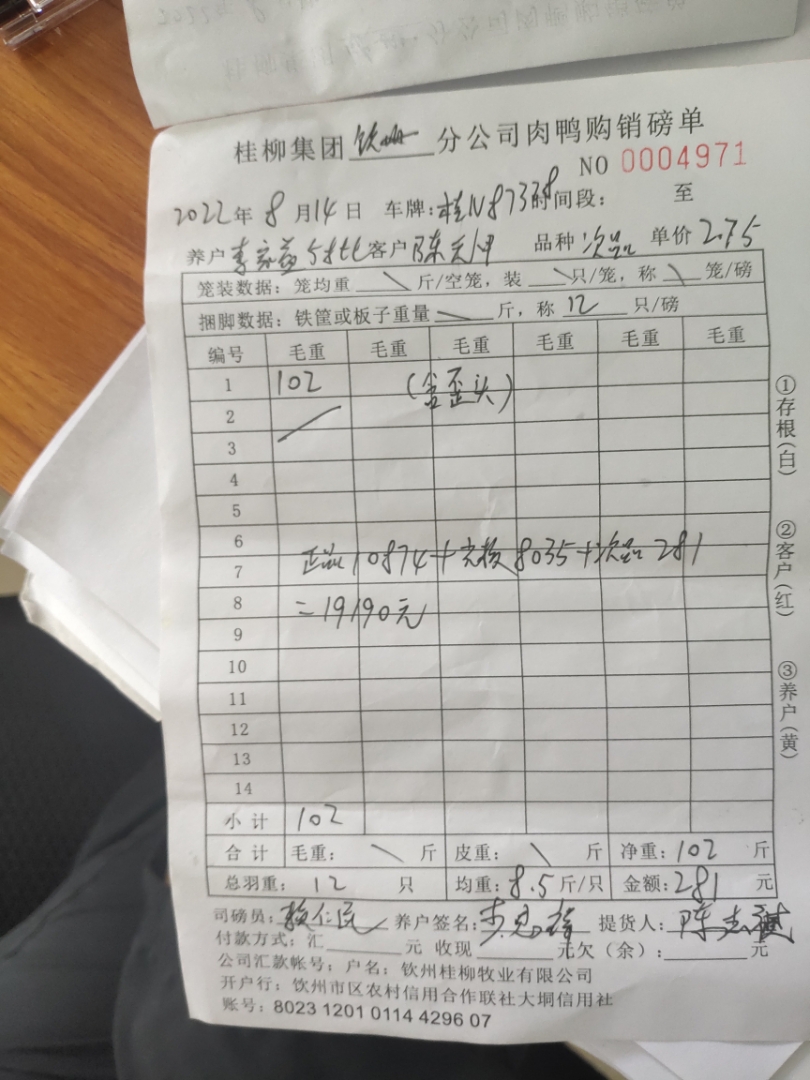 桂柳集团 钦州 分公司肉鸭购销磅单
NO 0004971
2022年 8 月 14 日 车牌：桂N87338 时间段： 至
养户 客户 陈 品种 次品 单价 2.75
笼装数据：笼均重 \ 斤/空笼，装 \ 只/笼，称 \ 笼/磅
捆脚数据：铁筐或板子重量 \ 斤，称 12 只/磅
编号 毛重 毛重 毛重 毛重 毛重 毛重
1 102 (含歪头)
2
3
4
5
6
7 正品10874+ 8035+次品281
8 =19190元
9
10
11
12
13
14
小计 102
合计 毛重： \ 斤 皮重： \ 斤 净重：102 斤
总羽重： 12 只 均重：8.5 斤/只 金额：281 元
司磅员：赖仁民 养户签名： 提货人：陈
付款方式：汇 元 收现 元欠（余）： 元
公司汇款帐号：户名：钦州桂柳牧业有限公司
开户行：钦州市区农村信用合作联社大垌信用社
账号：8023 1201 0114 4296 07
①存根(白)
②客户(红)
③养户(黄)